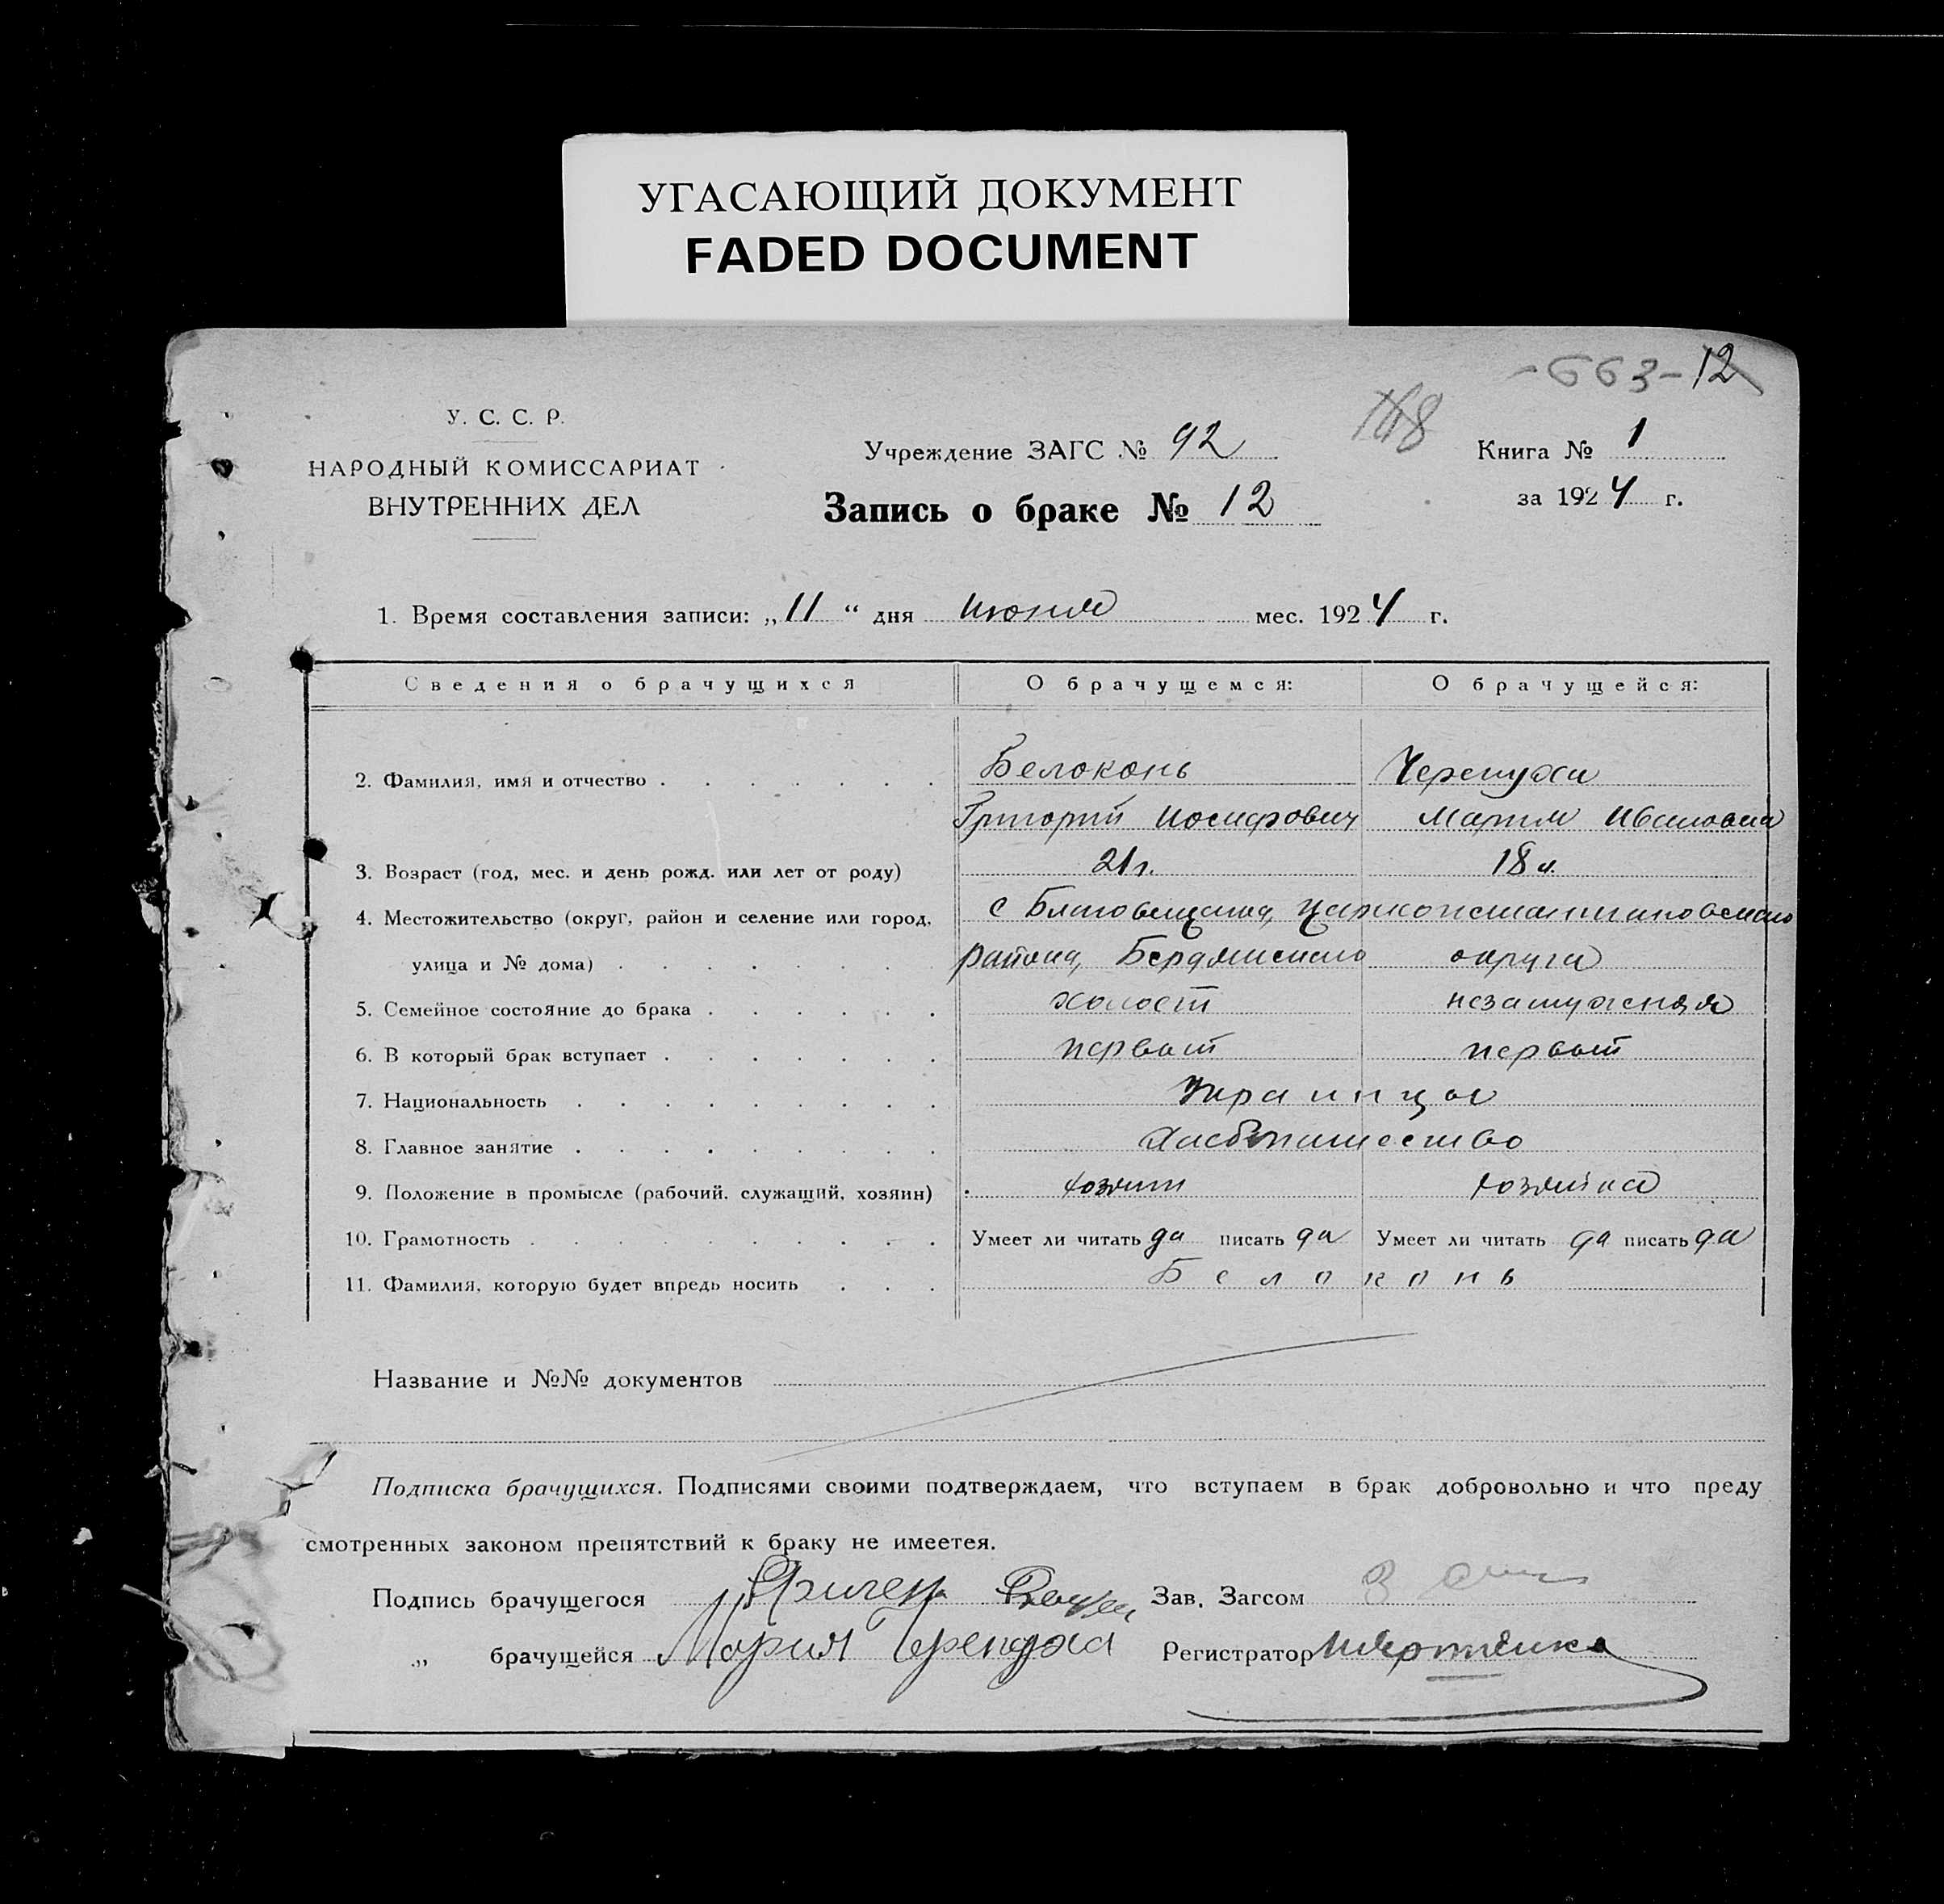 УГАСАЮЩИЙ ДОКУМЕНТ
FADED DOCUMENT
-663- 12
У. С. С. Р.
НАРОДНЫЙ КОМИССАРИАТ
ВНУТРЕННИХ ДЕЛ
Учреждение ЗАГС № 92
Запись о браке № 12
Книга № 1
за 1924 г.
1. Время составления записи: „11“ дня июня мес. 1924 г.
Сведения о брачущихся О брачущемся: О брачущейся:
2. Фамилия, имя и отчество Белоконь Черепуха
Григорий Иосифович Мария Ивановна
3. Возраст (год, мес. и день рожд. или лет от роду) 21 г. 18 л.
4. Местожительство (округ, район и селение или город, с Благовещенка, Царконстантиновского
улица и № дома) района, Бердянского округа
5. Семейное состояние до брака холост незамужняя
6. В который брак вступает первый первый
7. Национальность Украинцы
8. Главное занятие Хлебопашество
9. Положение в промысле (рабочий, служащий, хозяин) хозяин хозяйка
10. Грамотность Умеет ли читать да писать да Умеет ли читать да писать да
11. Фамилия, которую будет впредь носить Белоконь
Название и №№ документов
Подписка брачущихся. Подписями своими подтверждаем, что вступаем в брак добровольно и что преду
смотренных законом препятствий к браку не имеется.
Подпись брачущегося Зав. Загсом
„ брачущейся Мария Черепуха Регистратор